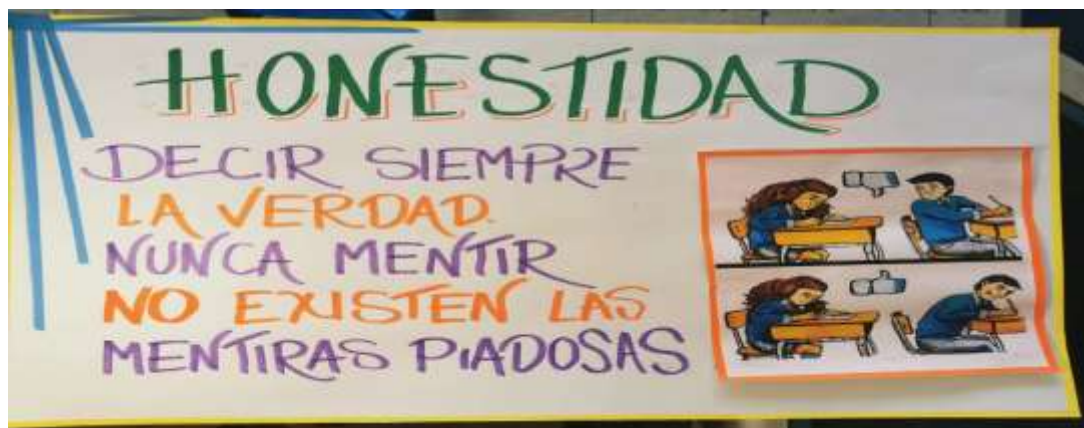 HONESTIDAD
DECIR SIEMPRE
LA VERDAD.
NUNCA MENTIR
NO EXISTEN LAS
MENTIRAS PIADOSAS